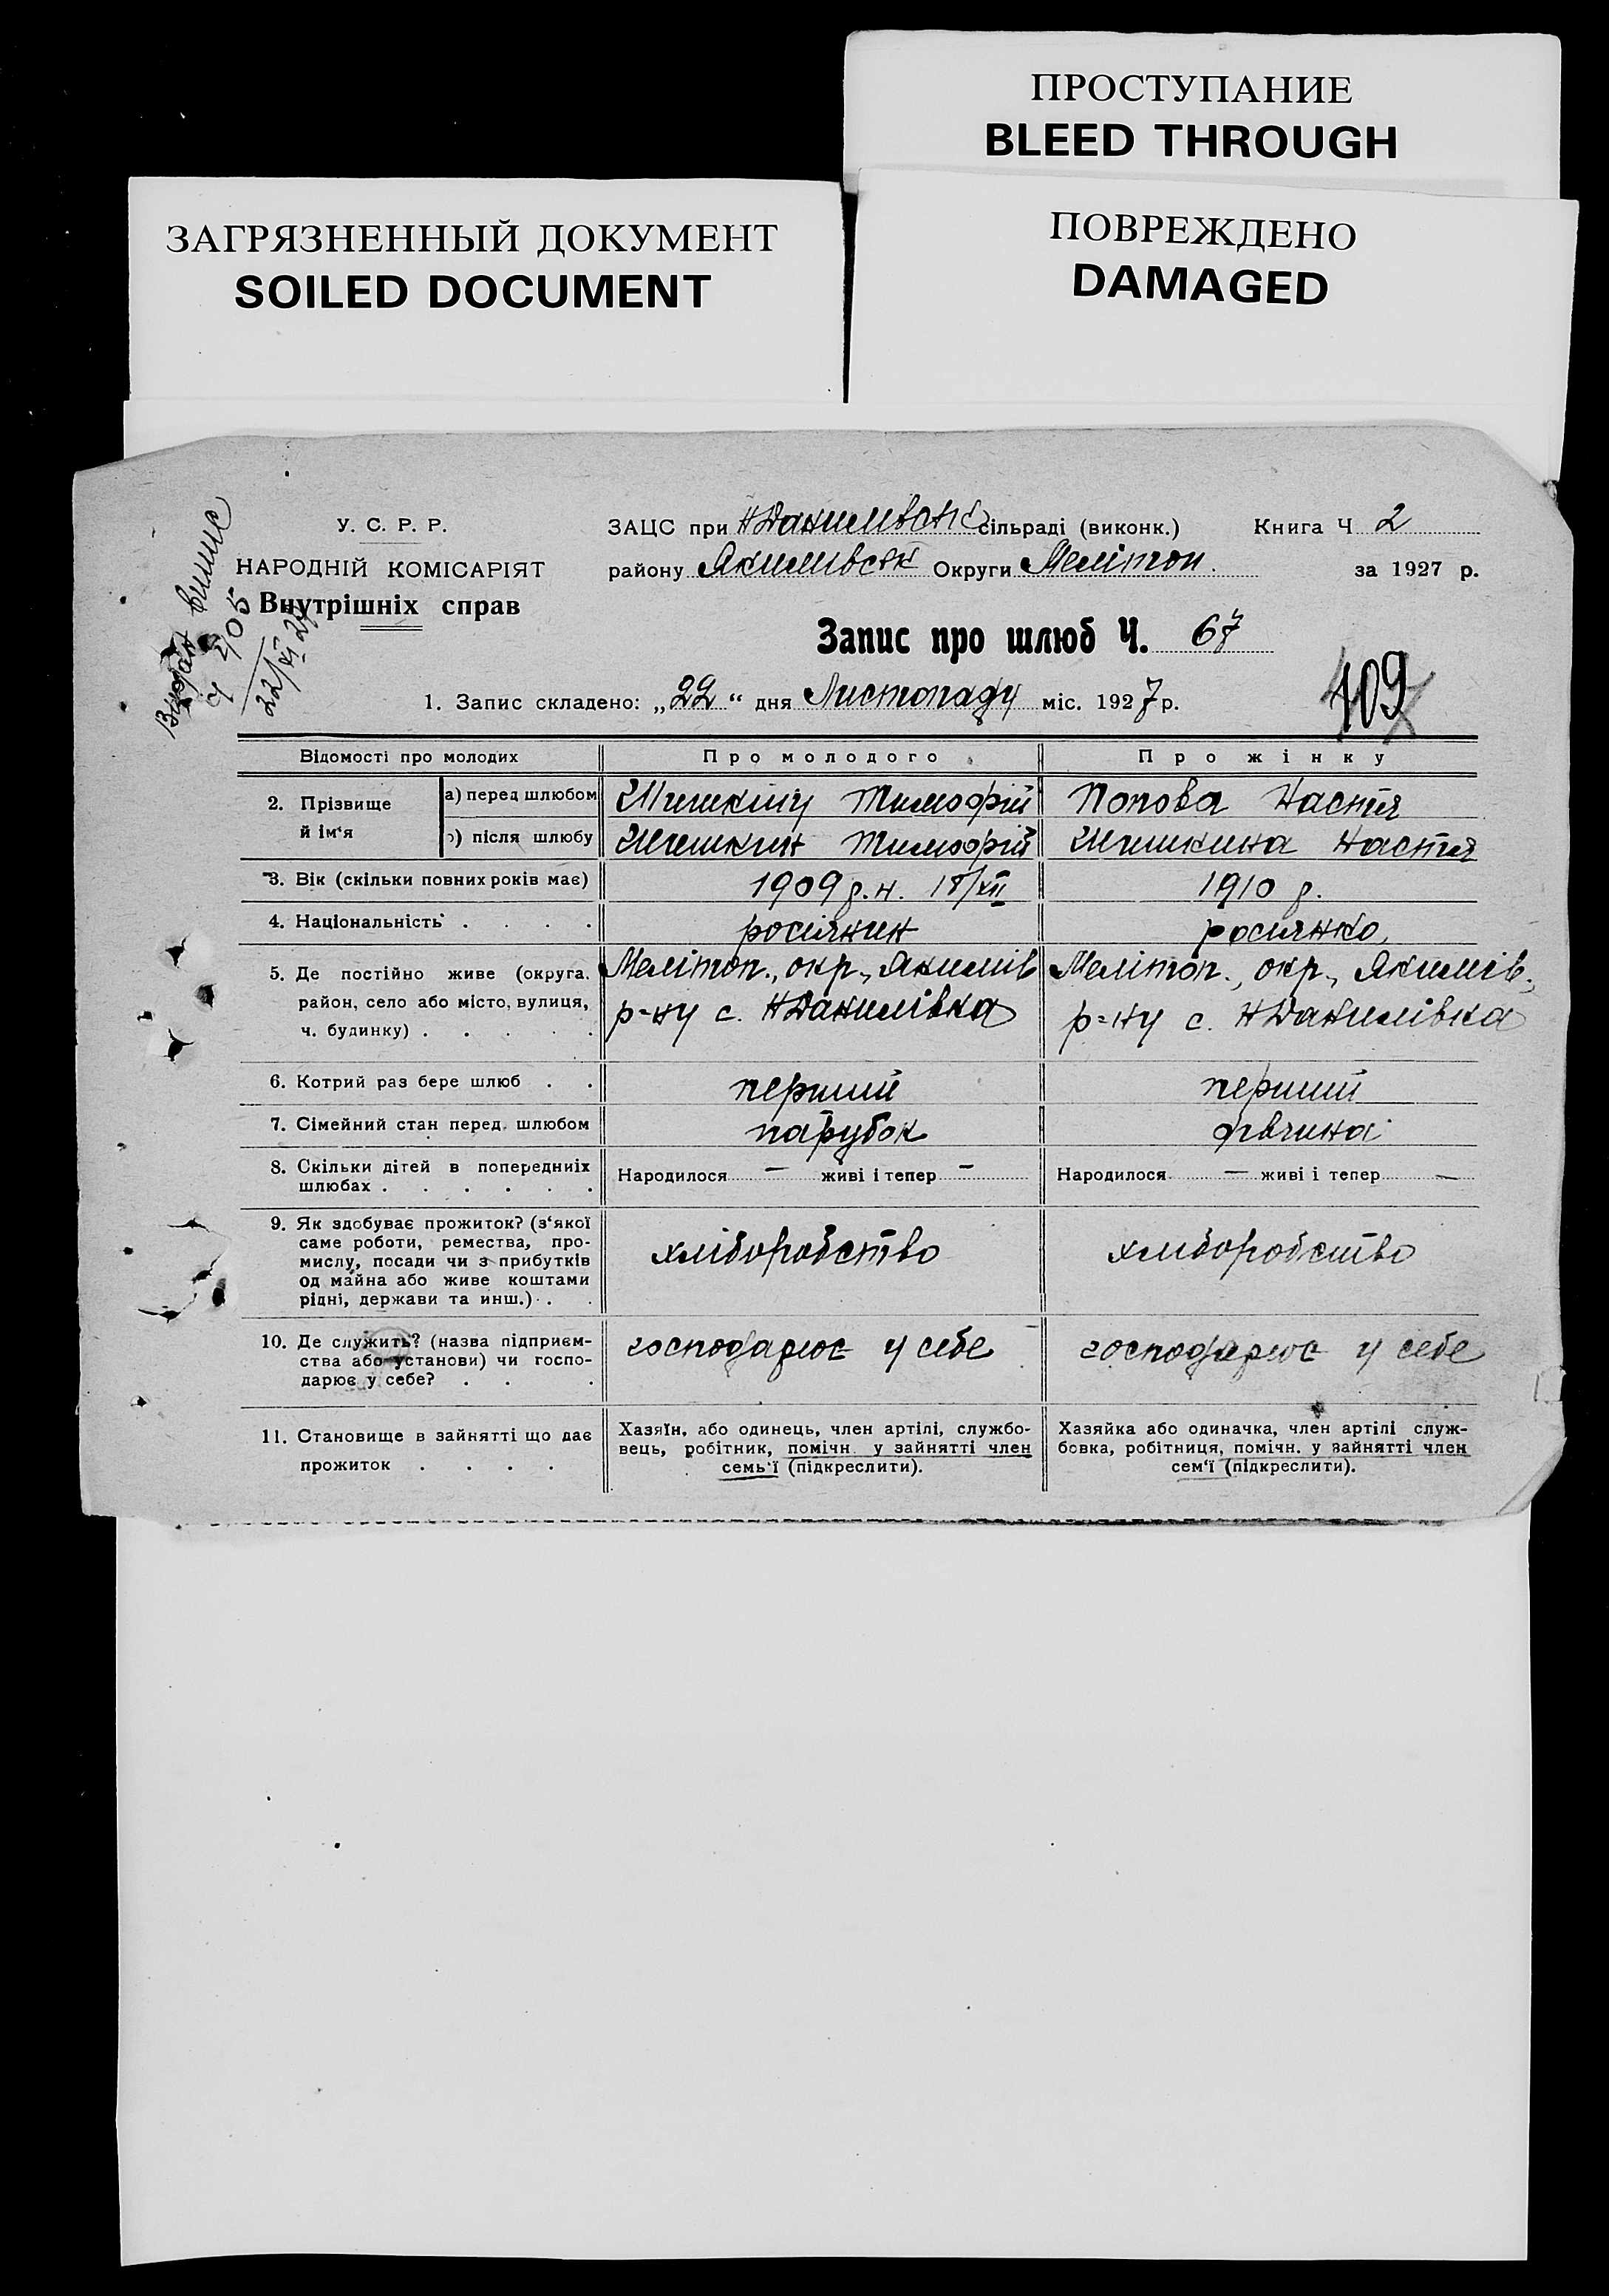 ПРОСТУПАНИЕ
BLEED THROUGH
ЗАГРЯЗНЕННЫЙ ДОКУМЕНТ
SOILED DOCUMENT
ПОВРЕЖДЕНО
DAMAGED
У. С. Р. Р.
НАРОДНІЙ КОМІСАРІЯТ
Внутрішніх справ
Видан випис
ч 205
22/XI 27
ЗАЦС при НДанилівській сільраді (виконк.) Книга Ч 2
району Якимівськ Округи Мелітоп. за 1927 р.
Запис про шлюб Ч. 67
109
1. Запис складено: „22“ дня Листопаду міс. 1927 р.
Відомості про молодих Про молодого Про жінку
2. Прізвище й ім‘я а) перед шлюбом Шишкін Тимофій Попова Настя
б) після шлюбу Шишкин Тимофій Шишкина Настя
3. Вік (скільки повних років має) 1909 р. н. 18/XII 1910 р.
4. Національність . . . . росіянин росіянка
5. Де постійно живе (округа, Меліто́п., окр., Якимів Мелітоп., окр., Якимів.,
район, село або місто, вулиця, р-ну с. НДанилівка р-ну с. НДанилівка
ч. будинку) . . . . .
6. Котрий раз бере шлюб . . перший перший
7. Сімейний стан перед шлюбом парубок дівчина
8. Скільки дітей в попередниіх Народилося — живі і тепер — Народилося — живі і тепер —
шлюбах . . . . . .
9. Як здобуває прожиток? (з‘якої
саме роботи, ремества, про-
мислу, посади чи з прибутків хліборобство хліборобство
од майна або живе коштами
рідні, держави та инш.) . .
10. Де служить? (назва підприєм- господарює у себе господарює у себе
ства або установи) чи госпо-
дарює у себе? . . .
11. Становище в зайнятті що дає Хазяїн, або одинець, член артілі, службо- Хазяйка або одиначка, член артілі служ-
прожиток . . . . вець, робітник, помічн. у зайнятті член бовка, робітниця, помічн. у зайнятті член
семь‘ї (підкреслити). сем‘ї (підкреслити).